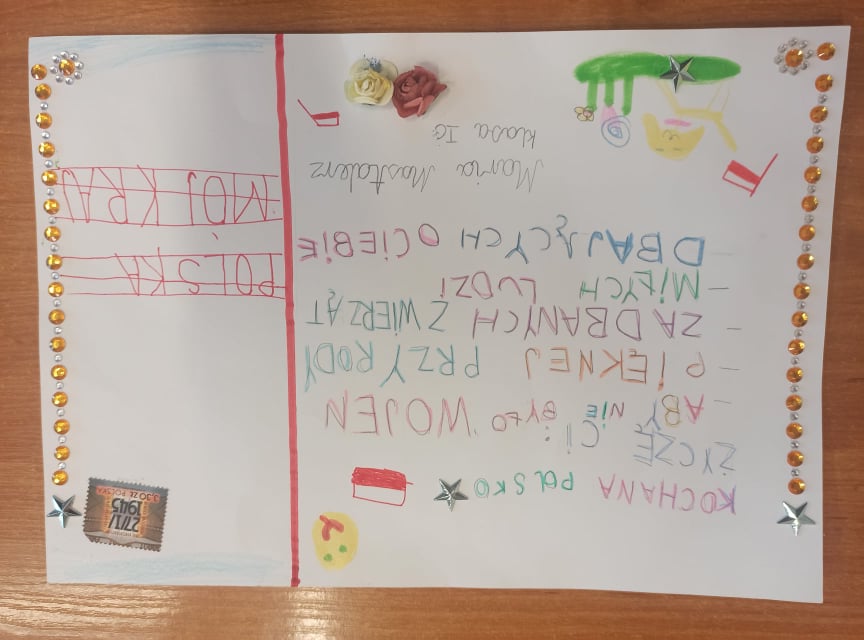 KOCHANA POLSKO
ŻYCZĘ CI:
- ABY NIE BYŁO WOJEN
- PIĘKNEJ PRZYRODY
- ZADBANYCH ZWIERZĄT
- MIŁYCH LUDZI
- DBAJĄCYCH O CIEBIE
Maria Mastalerz
klasa IG
27/I/
1945
3.30 ZŁ POLSKA
POLSKA
MÓJ KRAJ